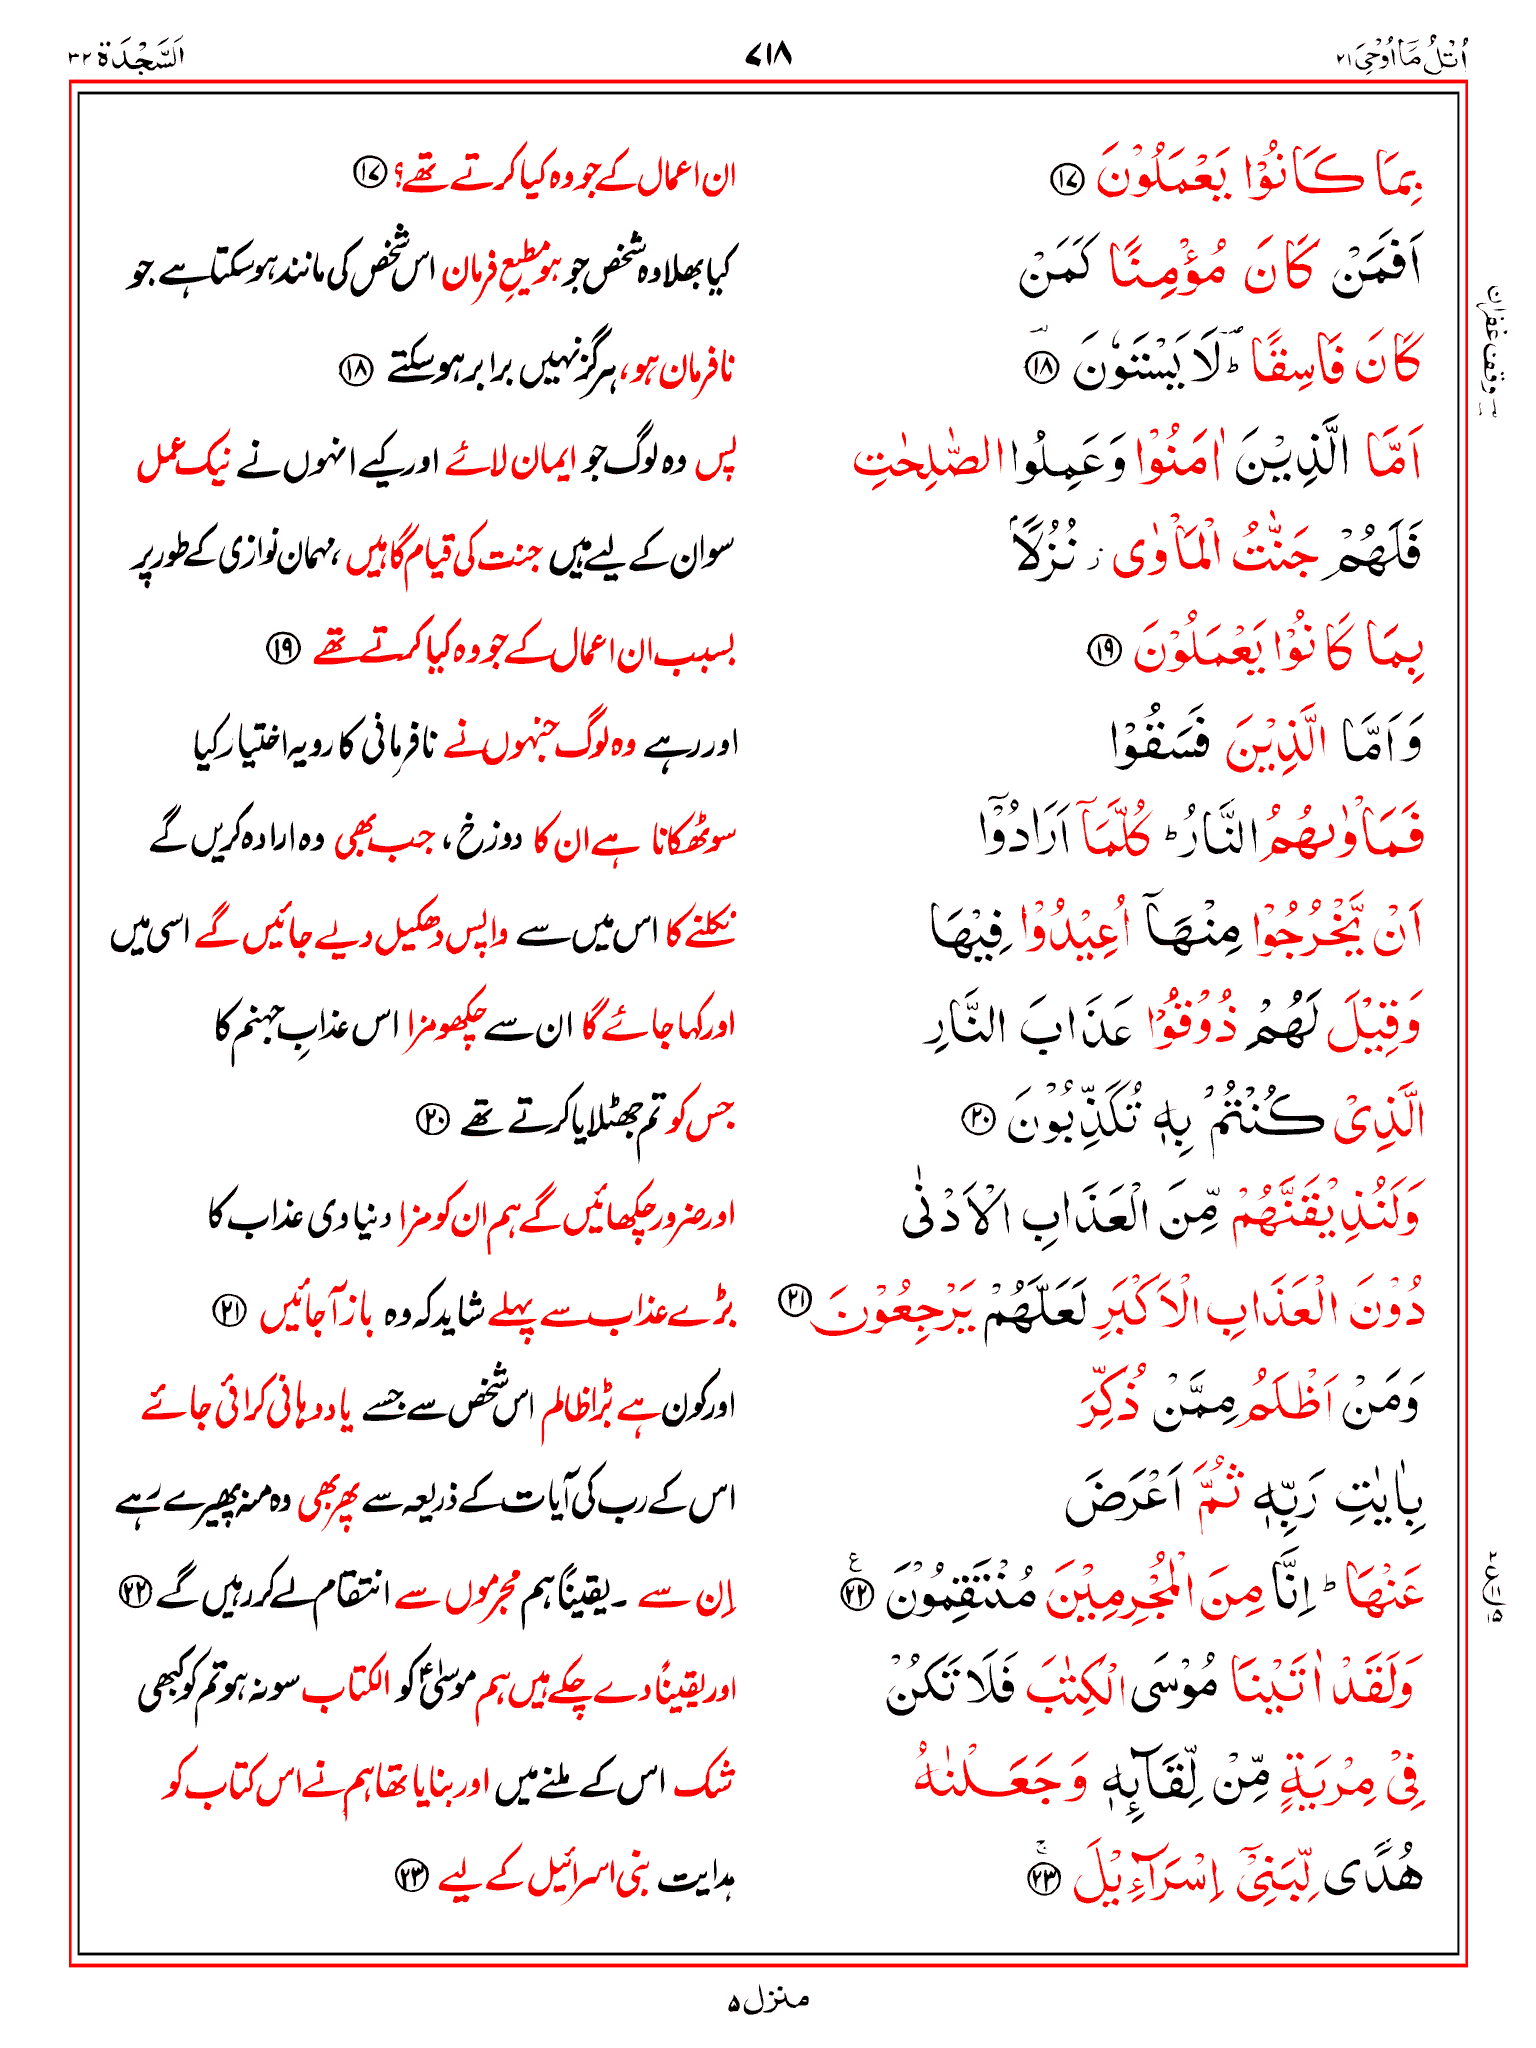 اُتْلُ مَاۤ اُوْحِیَ ۲۱
۷۱۸
اَلسَّجْدَة ۳۲
بِمَا كَانُوْا يَعْمَلُوْنَ ۝۱۷ ان اعمال کے جو وہ کیا کرتے تھے؟ ۝۱۷
اَفَمَنْ كَانَ مُؤْمِنًا كَمَنْ کیا بھلا وہ شخص جو ہو مطیعِ فرمان اس شخص کی مانند ہو سکتا ہے جو
كَانَ فَاسِقًا ؕ لَا يَسْتَوٗنَ ۝۱۸ نافرمان ہو، ہرگز نہیں برابر ہو سکتے ۝۱۸
اَمَّا الَّذِيْنَ اٰمَنُوْا وَعَمِلُوا الصّٰلِحٰتِ پس وہ لوگ جو ایمان لائے اور کیے انہوں نے نیک عمل
فَلَهُمْ جَنّٰتُ الْمَاْوٰى ز نُزُلًاۢ سو ان کے لیے ہیں جنت کی قیام گاہیں، مہمان نوازی کے طور پر
بِمَا كَانُوْا يَعْمَلُوْنَ ۝۱۹ بسبب ان اعمال کے جو وہ کیا کرتے تھے ۝۱۹
وَاَمَّا الَّذِيْنَ فَسَقُوْا اور رہے وہ لوگ جنہوں نے نافرمانی کا رویہ اختیار کیا
فَمَاْوٰىهُمُ النَّارُ ؕ كُلَّمَاۤ اَرَادُوْۤا سو ٹھکانا ہے ان کا دوزخ، جب بھی وہ ارادہ کریں گے
اَنْ يَّخْرُجُوْا مِنْهَاۤ اُعِيْدُوْا فِيْهَا نکلنے کا اس میں سے واپس دھکیل دیے جائیں گے اسی میں
وَقِيْلَ لَهُمْ ذُوْقُوْا عَذَابَ النَّارِ اور کہا جائے گا ان سے چکھو مزا اس عذابِ جہنم کا
الَّذِىْ كُنْتُمْ بِهٖ تُكَذِّبُوْنَ ۝۲۰ جس کو تم جھٹلایا کرتے تھے ۝۲۰
وَلَنُذِيْقَنَّهُمْ مِّنَ الْعَذَابِ الْاَدْنٰى اور ضرور چکھائیں گے ہم ان کو مزا دنیاوی عذاب کا
دُوْنَ الْعَذَابِ الْاَكْبَرِ لَعَلَّهُمْ يَرْجِعُوْنَ ۝۲۱ بڑے عذاب سے پہلے شاید کہ وہ باز آ جائیں ۝۲۱
وَمَنْ اَظْلَمُ مِمَّنْ ذُكِّرَ اور کون ہے بڑا ظالم اس شخص سے جسے یاد دہانی کرائی جائے
بِاٰيٰتِ رَبِّهٖ ثُمَّ اَعْرَضَ اس کے رب کی آیات کے ذریعہ سے پھر بھی وہ منہ پھیرے رہے
عَنْهَا ؕ اِنَّا مِنَ الْمُجْرِمِيْنَ مُنْتَقِمُوْنَ ۝۲۲ اِن سے ۔ یقیناً ہم مجرموں سے انتقام لے کر رہیں گے ۝۲۲
وَلَقَدْ اٰتَيْنَا مُوْسَى الْكِتٰبَ فَلَا تَكُنْ اور یقیناً دے چکے ہیں ہم موسیٰؑ کو الکتاب سو نہ ہو تم کو کبھی
فِىْ مِرْيَةٍ مِّنْ لِّقَآئِهٖ وَجَعَلْنٰهُ شک اس کے ملنے میں اور بنایا تھا ہم نے اس کتاب کو
هُدًى لِّبَنِىْۤ اِسْرَآءِيْلَ ۝۲۳ ہدایت بنی اسرائیل کے لیے ۝۲۳
وقف غفران
منزل ۵